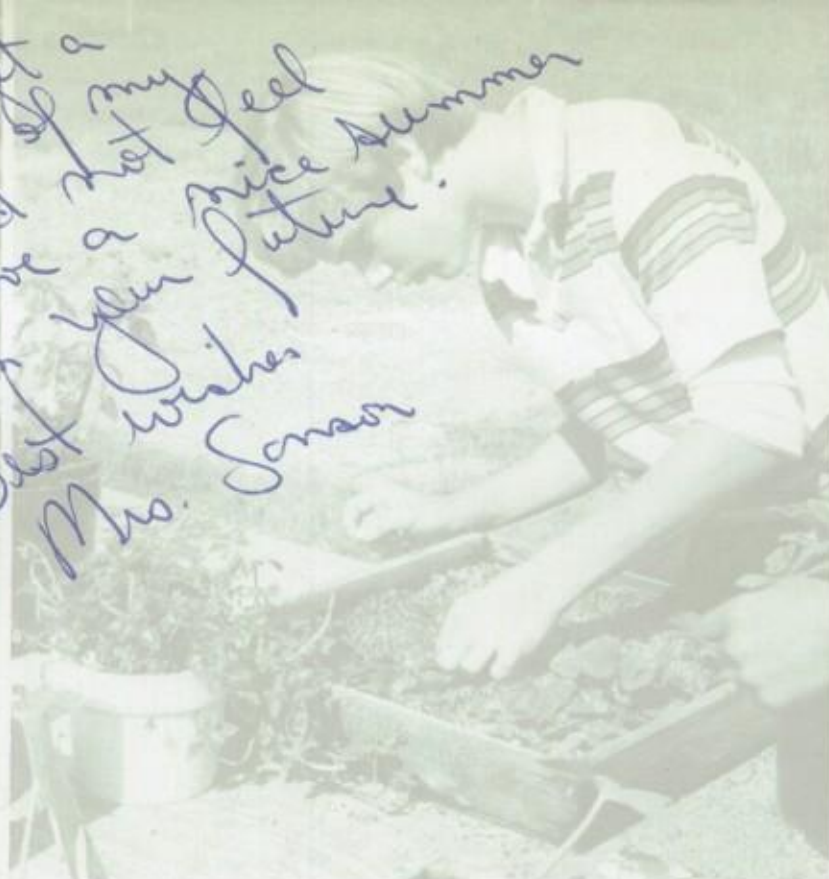 a
of my
not feel
a nice summer
your future.
best wishes
Mrs. Sanson